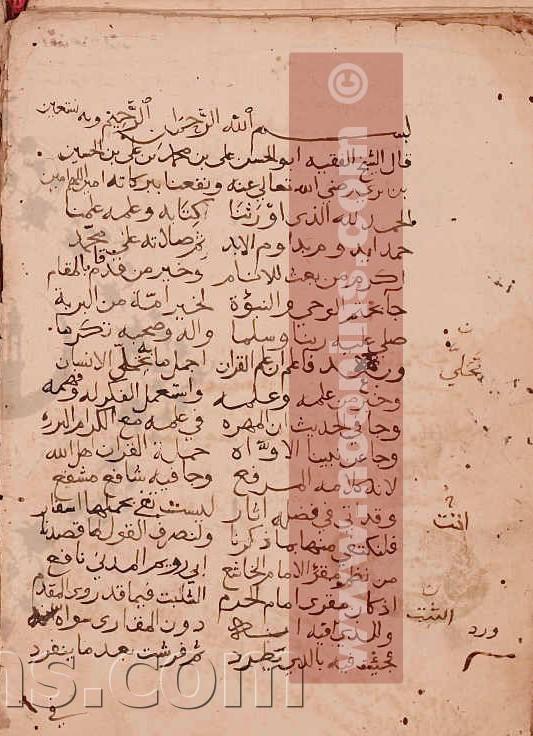 بسم الله الرحمن الرحيم وبه نستعين
قال الشيخ الفقيه ابو الحسن على بن محمد بن على بن الحسين
بن بري رضي الله تعالى عنه ونفعنا ببركاته امين
الحمد لله الذى اورثنا كتابه وعلمه علمنا
حمدا يدوم بدوام الابد ثم صلاته على محمد
اكرم من بعث للانام وخير من قد قام بالمقام
جا بختم الوحي والنبوة لخير امة من البرية
صلى عليه ربنا وسلما واله وصحبه تكرما
وبعد فاعلم ان علم القران اجمل ما به تحلى الانسان
تحلي
وخير من علمه وعلمه واستعمل الفكر له وفهمه
وجا فى حديث ان المهره في علمه مع الكرام البرره
وجا عن نبينا الاواه حملة القران اهل الله
لانه كلامه المرفع وجا فيه شافع مشفع
وقد اتى في فضله اثار ليست تفي بحملها اسفار
اتت
فلنكتفي منها بما ذكرنا ولنصرف القول لما قصدنا
من نظم مقرا الامام الخاشع ابي رويم المدني نافع
اذ كان مقرى امام الحرم الثبت فيما قد روى المقدم
الثبت
وللذى ورد فيه انه دون المقاري سواه سنه
ورد
فجئت فيه بالذي يطرد ثم فرشت بعد ما ينفرد
في
www.
ns.com
©